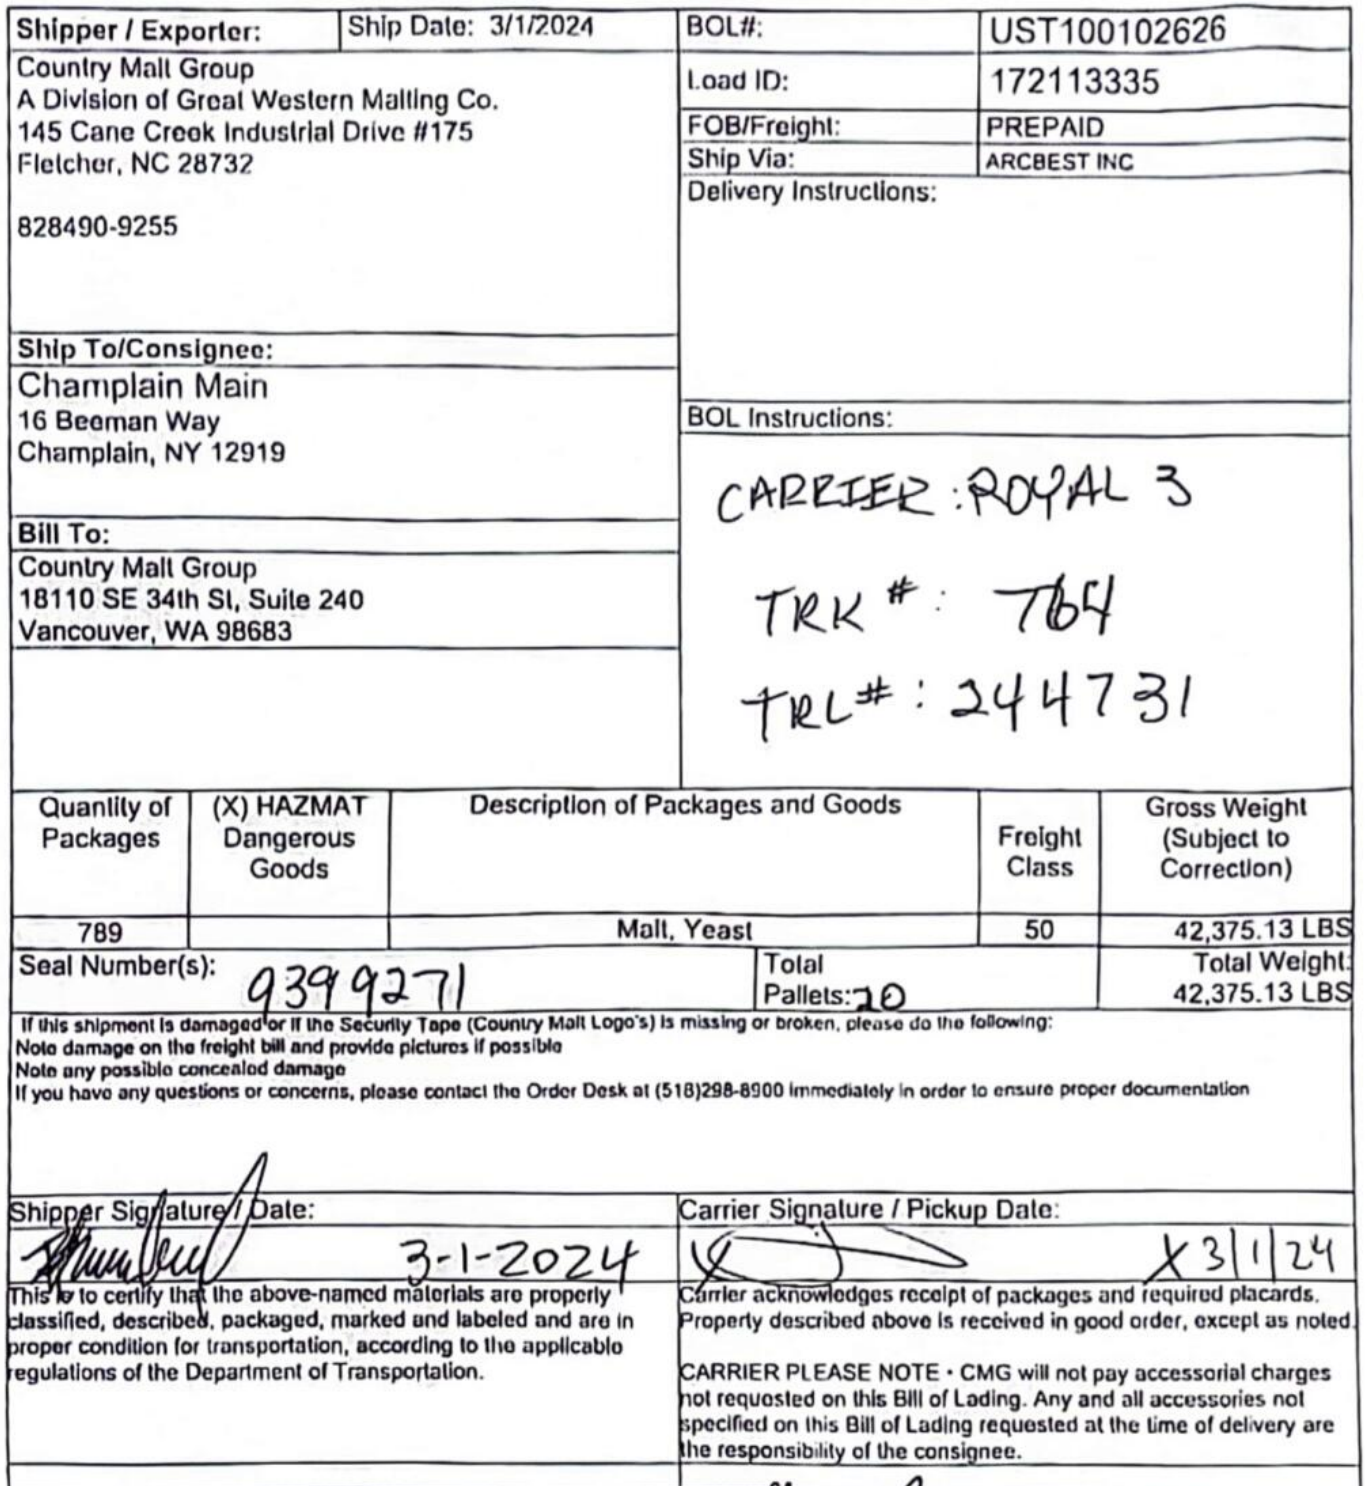 Shipper / Exporter:
Ship Date: 3/1/2024
Country Malt Group
A Division of Great Western Malting Co.
145 Cane Creek Industrial Drive #175
Fletcher, NC 28732
828490-9255
BOL#:
UST100102626
Load ID:
172113335
FOB/Freight:
PREPAID
Ship Via:
ARCBEST INC
Delivery Instructions:
Ship To/Consignee:
Champlain Main
16 Beeman Way
Champlain, NY 12919
Bill To:
Country Malt Group
18110 SE 34th St, Suite 240
Vancouver, WA 98683
BOL Instructions:
CARRIER: ROYAL 3
TRK #: 764
TRL#: 244731
Quantity of
Packages
(X) HAZMAT
Dangerous
Goods
Description of Packages and Goods
Freight
Class
Gross Weight
(Subject to
Correction)
789
Malt, Yeast
50
42,375.13 LBS
Seal Number(s): 9399271
Total
Pallets: 20
Total Weight:
42,375.13 LBS
If this shipment is damaged or if the Security Tape (Country Malt Logo's) is missing or broken, please do the following:
Note damage on the freight bill and provide pictures if possible
Note any possible concealed damage
If you have any questions or concerns, please contact the Order Desk at (518)298-8900 immediately in order to ensure proper documentation
Shipper Signature / Date:
3-1-2024
This is to certify that the above-named materials are properly
classified, described, packaged, marked and labeled and are in
proper condition for transportation, according to the applicable
regulations of the Department of Transportation.
Carrier Signature / Pickup Date:
X 3/1/24
Carrier acknowledges receipt of packages and required placards.
Property described above is received in good order, except as noted.
CARRIER PLEASE NOTE - CMG will not pay accessorial charges
not requested on this Bill of Lading. Any and all accessories not
specified on this Bill of Lading requested at the time of delivery are
the responsibility of the consignee.